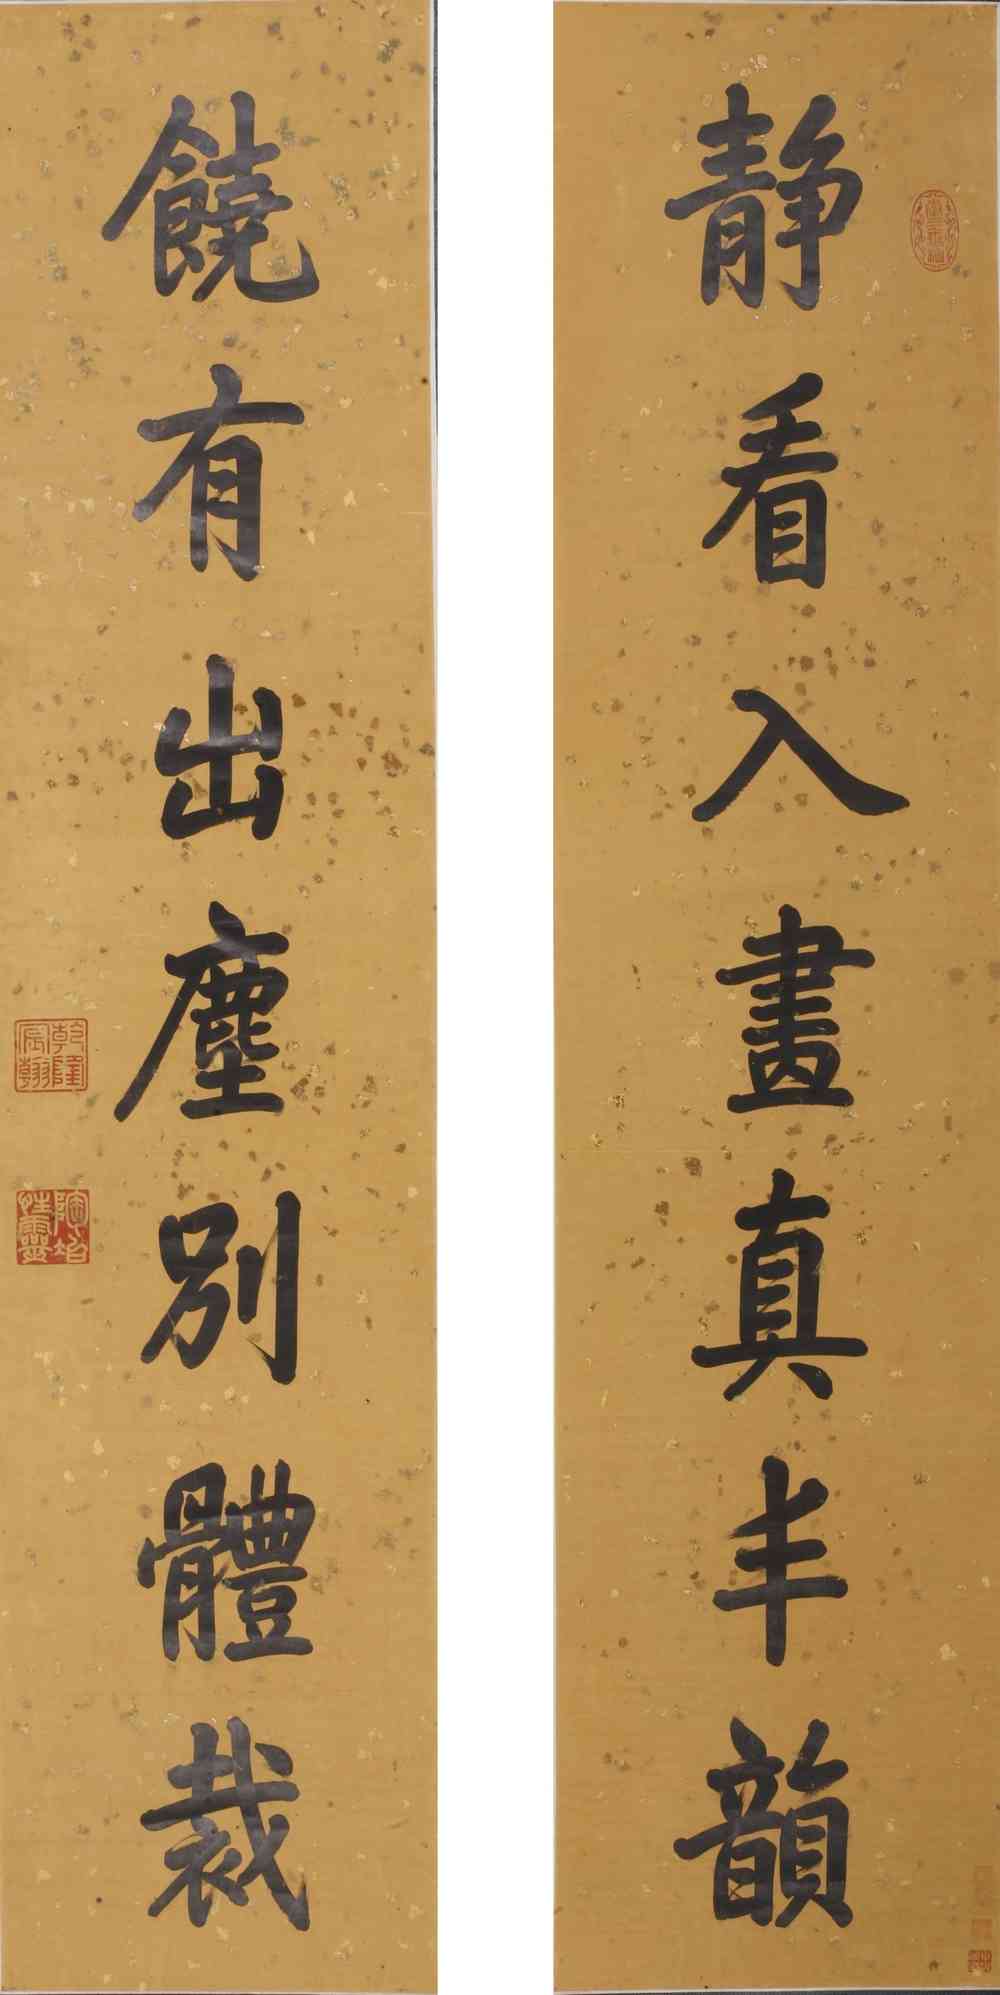 静看入畫真丰韻
饒有出塵別體裁
乾隆宸翰
陶冶性靈